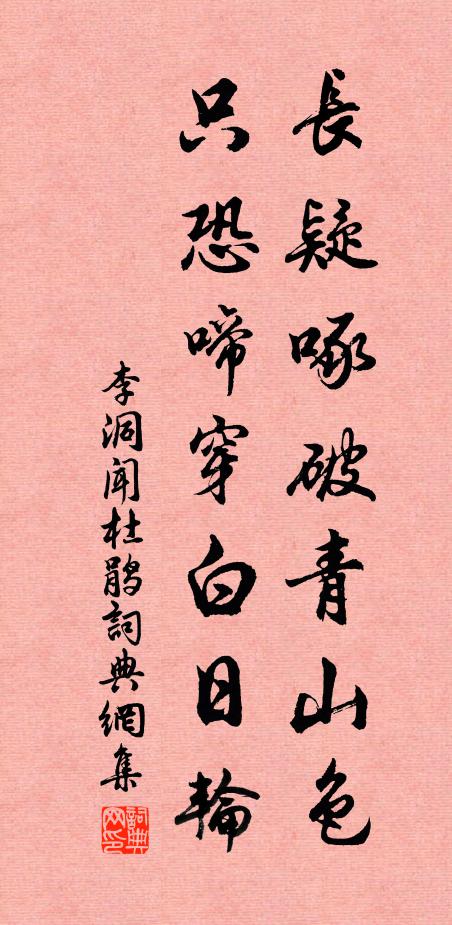 長疑啄破青山色
只恐啼穿白日輪
李洞闻杜鹃詞典網集
詞典网印